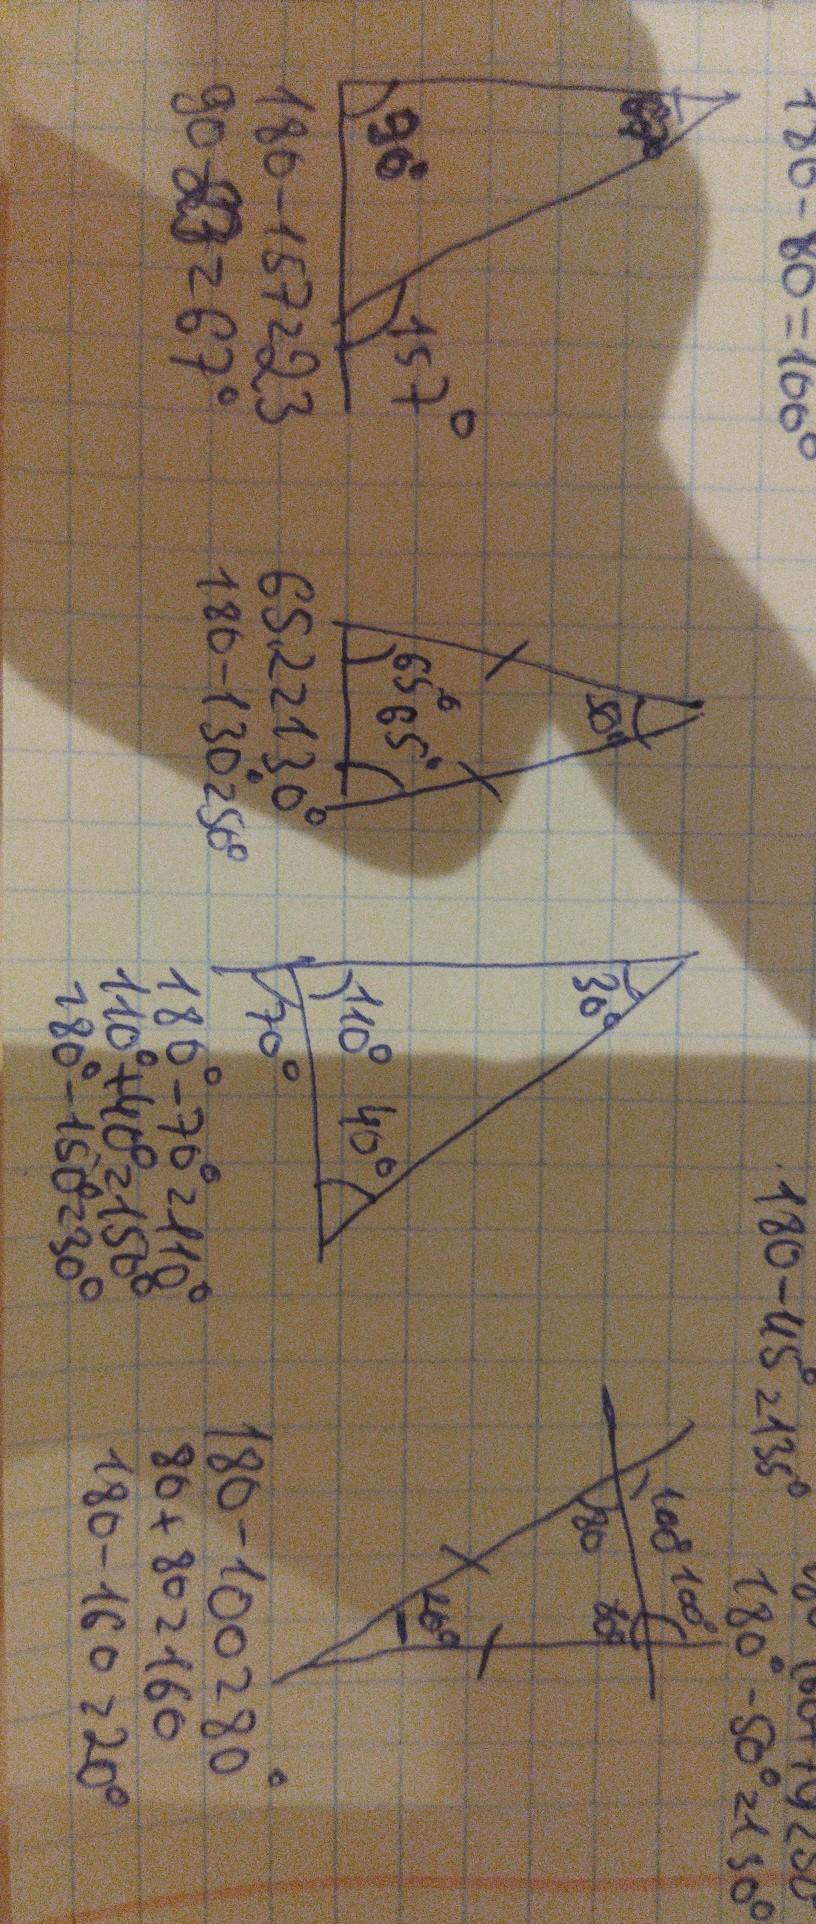 180-80=100°
180-45°=135°
180°-50°=130°
67°
90°
157°
180-157=23
=67°
50°
65° 65°
65.2=130°
180-130°=50°
30°
110° 40°
70°
180°-70°=110°
110°+40°=150°
180°-150°=30°
100° 100°
80 80°
20°
180-100=80°
80+80=160
180-160=20°